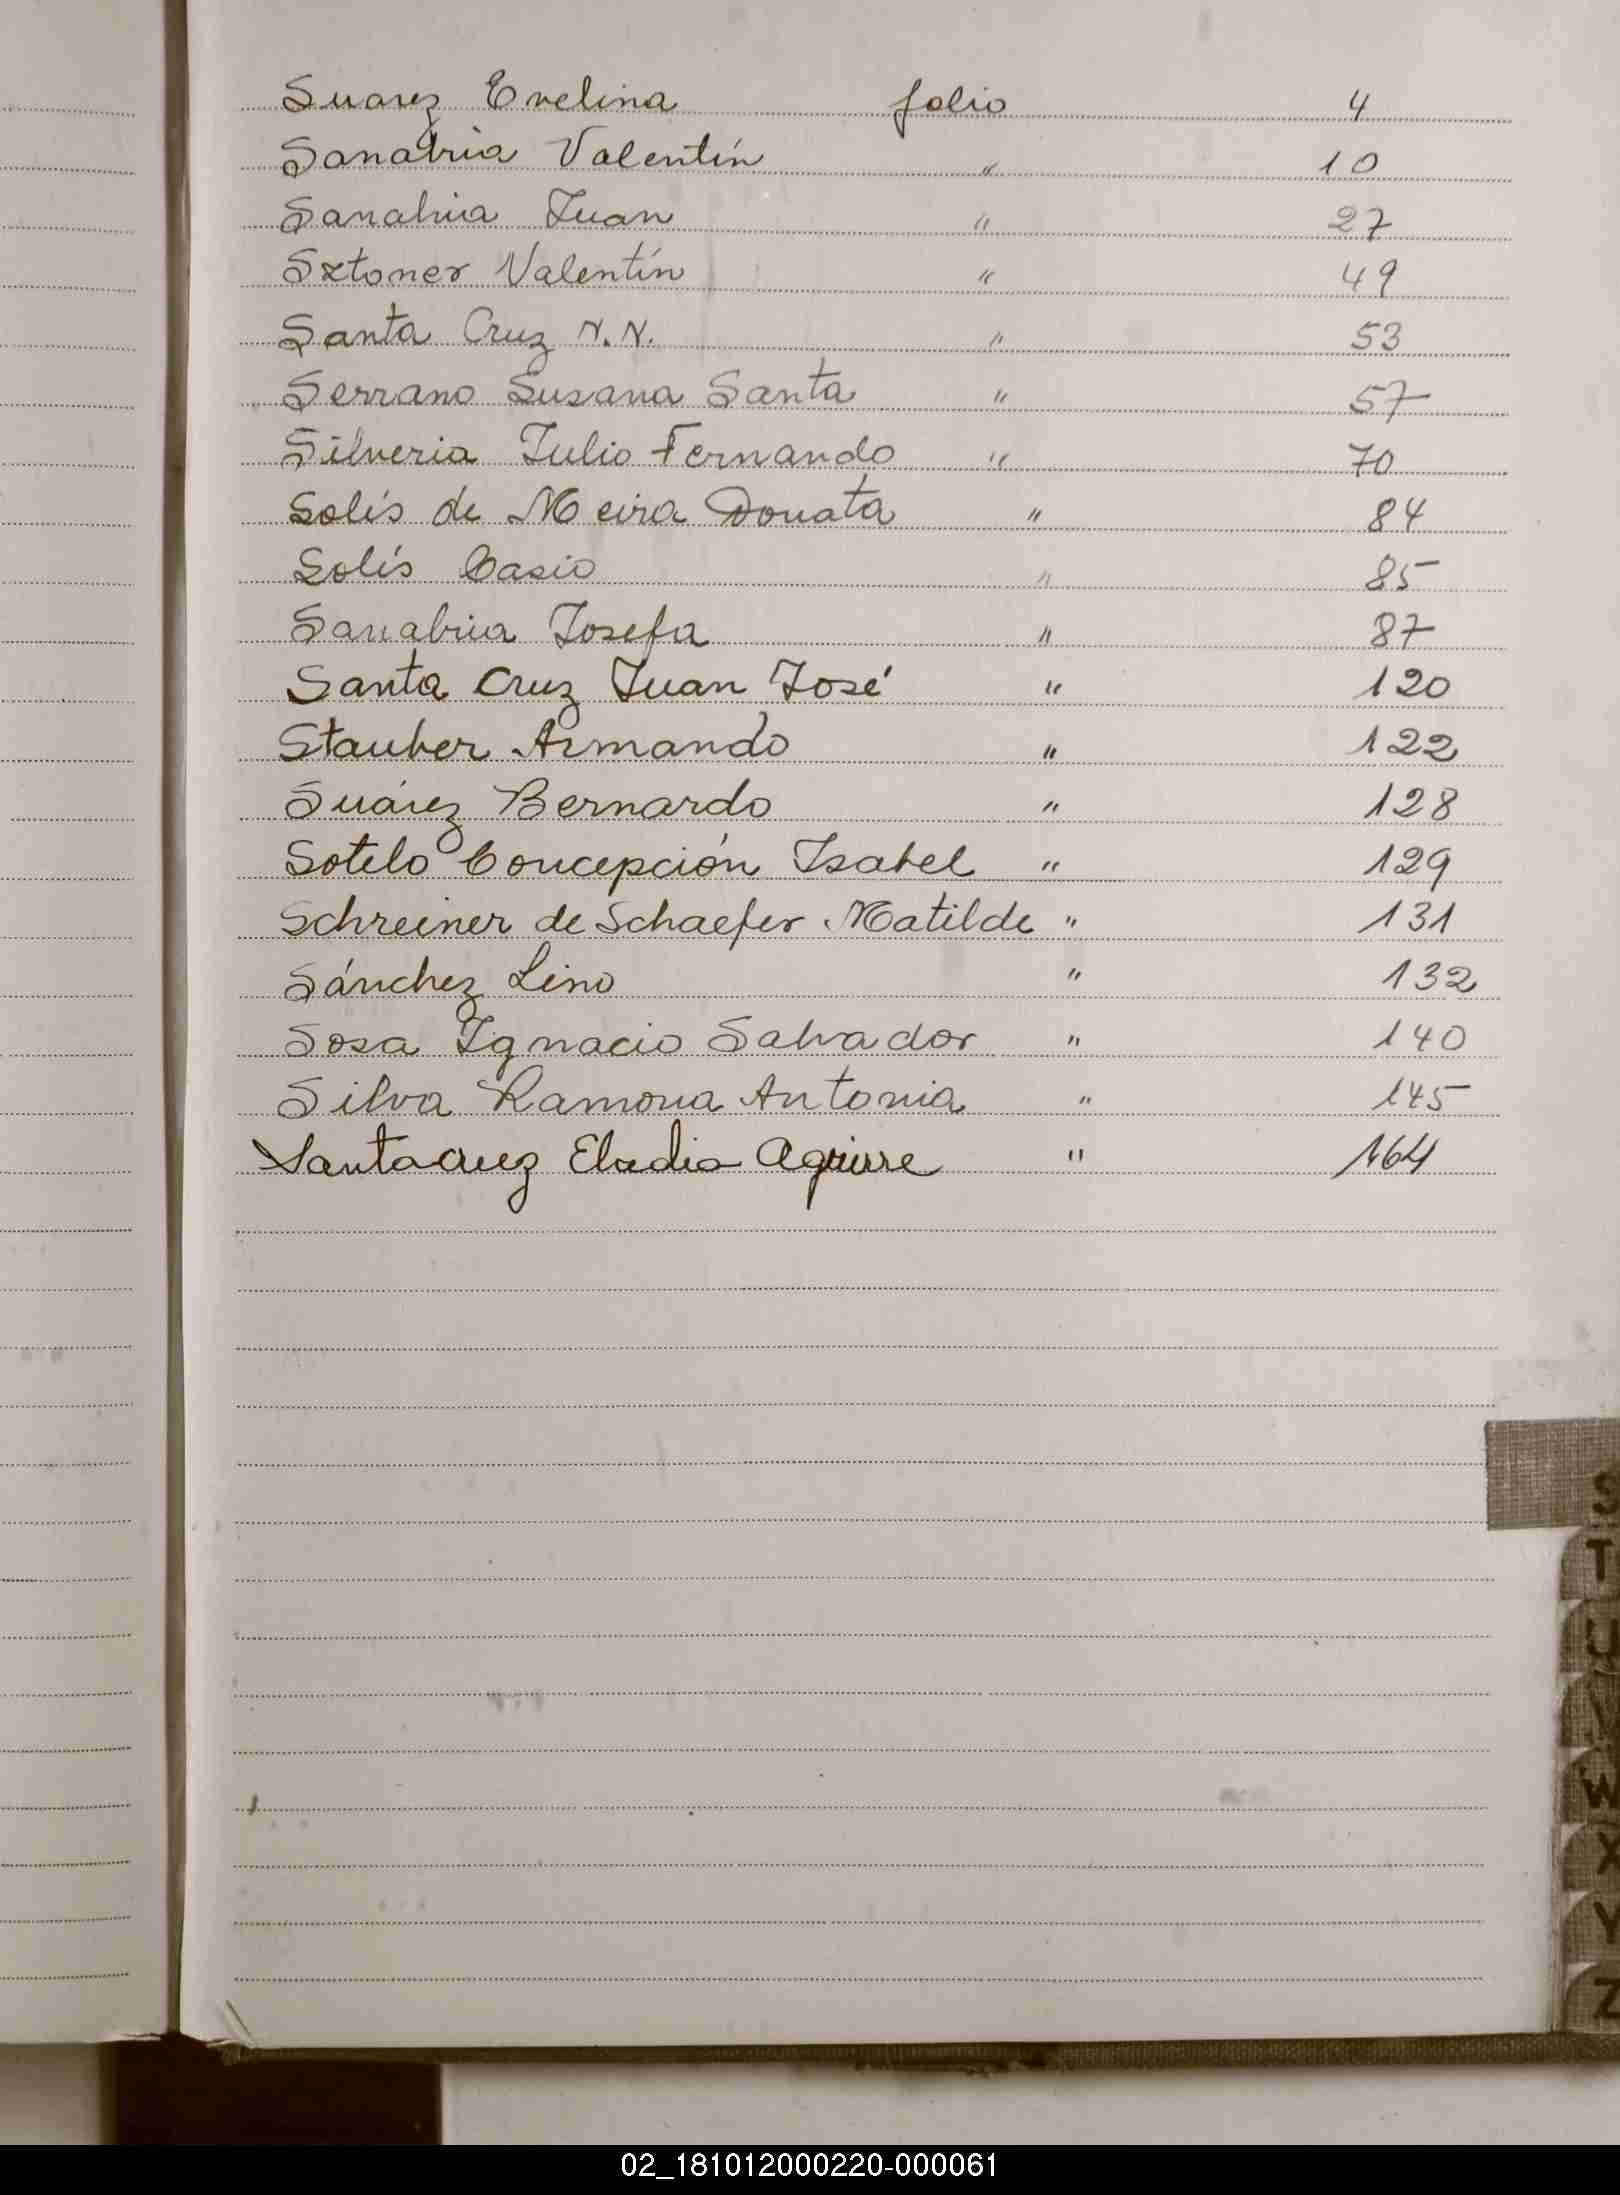 Suarez Evelina folio 4
Sanabria Valentín " 10
Sanabria Juan " 27
Sztoner Valentín " 49
Santa Cruz N.N. " 53
Serrano Susana Santa " 57
Silveria Julio Fernando " 70
Solís de Meira Donata " 84
Solís Casio " 85
Sanabria Josefa " 87
Santa Cruz Juan José " 120
Stauber Armando " 122
Suárez Bernardo " 128
Sotelo Concepción Isabel " 129
Schreiner de Schaefer Matilde " 131
Sánchez Lino " 132
Sosa Ignacio Salvador " 140
Silva Ramona Antonia " 145
Santacruz Eladia Aguirre " 164
S
T
U
V
W
X
Y
Z
02_181012000220-000061